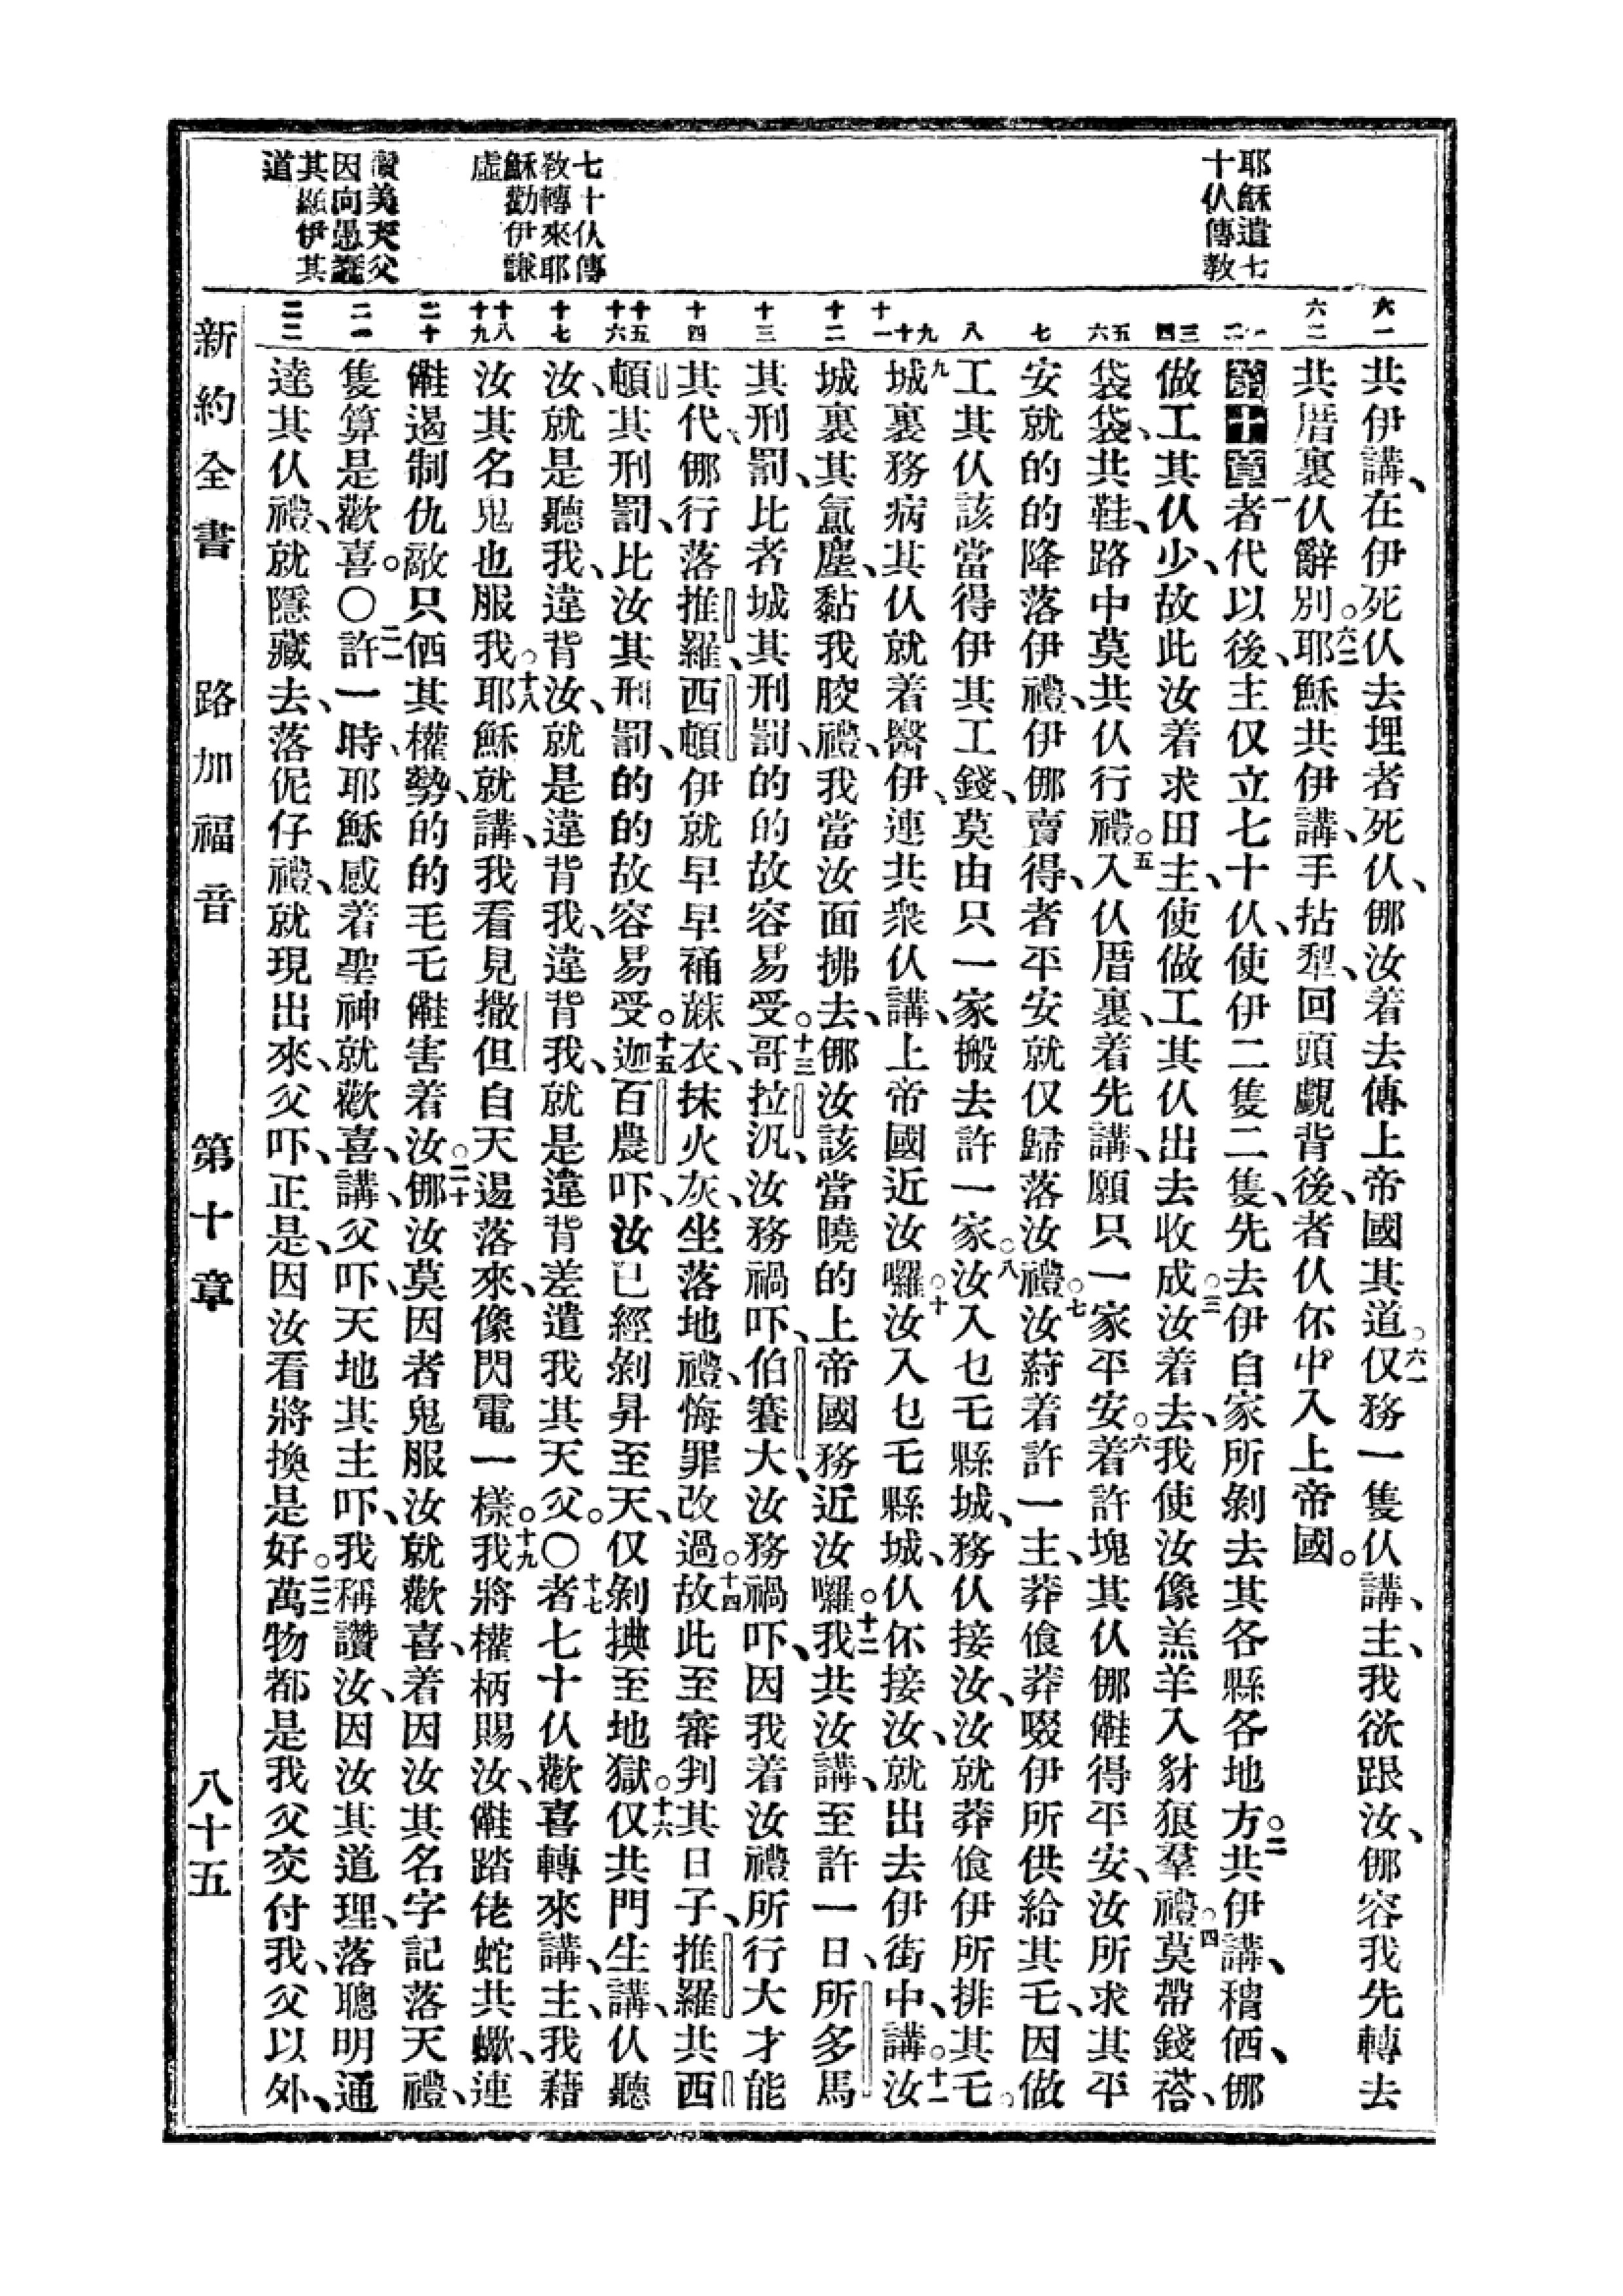 耶穌遣七
十仈傳教
七十仈傳
敎轉來耶
穌勸伊謙
虛
讚美天父
因向愚蒙
其顯伊其
道
六一
六二
一
二
三
四
五
六
七
八
九
十
十一
十二
十三
十四
十五
十六
十七
十八
十九
二十
二一
二二
共伊講、在伊死仈去埋者死仈、㑚汝着去傳上帝國其道。六一仅務一隻仈講、主、我欲跟汝、㑚容我先轉去
共厝裏仈辭別。六二耶穌共伊講、手拈犁、回頭覷背後、者仈伓中入上帝國。
第十章一者代以後、主仅立七十仈、使伊二隻二隻、先去伊自家所剝去其各縣各地方。二共伊講、䅈㑚、㑚
做工其仈少、故此汝着求田主、使做工其仈出去收成。三汝着去、我使汝像羔羊入豺狼羣禮。四莫帶錢褡、
袋袋、共鞋、路中莫共仈行禮。五入仈厝裏、着先講、願只一家平安。六着許塊其仈㑚𣍐得平安、汝所求其平
安就的的降落伊禮、伊㑚賣得、者平安就仅歸落汝禮。七汝蒔着許一主、莽飡莽啜伊所供給其乇、因做
工其仈該當得伊其工錢、莫由只一家搬去許一家。八汝入乜乇縣城、務仈接汝、汝就莽飡伊所排其乇。
九城裏務病其仈就着醫伊、連共衆仈講、上帝國近汝囉。十汝入乜乇縣城、仈伓接汝、就出去伊街中、講。十一汝
城裏其氲塵、黏我骹禮、我當汝面拂去、㑚汝該當曉的上帝國務近汝囉。十二我共汝講、至許一日、所多馬
其刑罰、比者城其刑罰、的的故容易受。十三哥拉汎、汝務禍吓、伯賽大、汝務禍吓、因我着汝禮所行大才能
其代、㑚行落推羅、西頓、伊就早早補蔴衣、抹火灰、坐落地禮、悔罪改過。十四故此至審判其日子、推羅共西
頓其刑罰、比汝其刑罰、的的故容易受。十五迦百農吓、汝已經剝昇至天、仅剝㨃至地獄。十六仅共門生講、仈聽
汝、就是聽我、違背汝、就是違背我、違背我、就是違背差遣我其天父。〇十七者七十仈歡喜轉來講、主、我藉
汝其名、鬼也服我。十八耶穌就講、我看見撒但自天逿落來、像閃電一樣。十九我將權柄賜汝、𣍐踏佬蛇共蠍、連
𣍐逿制仇敵只㑚其權勢、的的毛乇𣍐害着汝。二十㑚汝莫因者鬼服汝就歡喜、着因汝其名字記落天禮、
隻算是歡喜。〇二一許一時、耶穌感着聖神就歡喜、講、父吓、天地其主吓、我稱讚汝、因汝其道理、落聰明通
達其仈禮、就隱藏去、落伲仔禮、就現出來、父吓、正是、因汝看將換是好。二二萬物都是我父交付我、父以外、
新約全書 路加福音 第十章 八十五